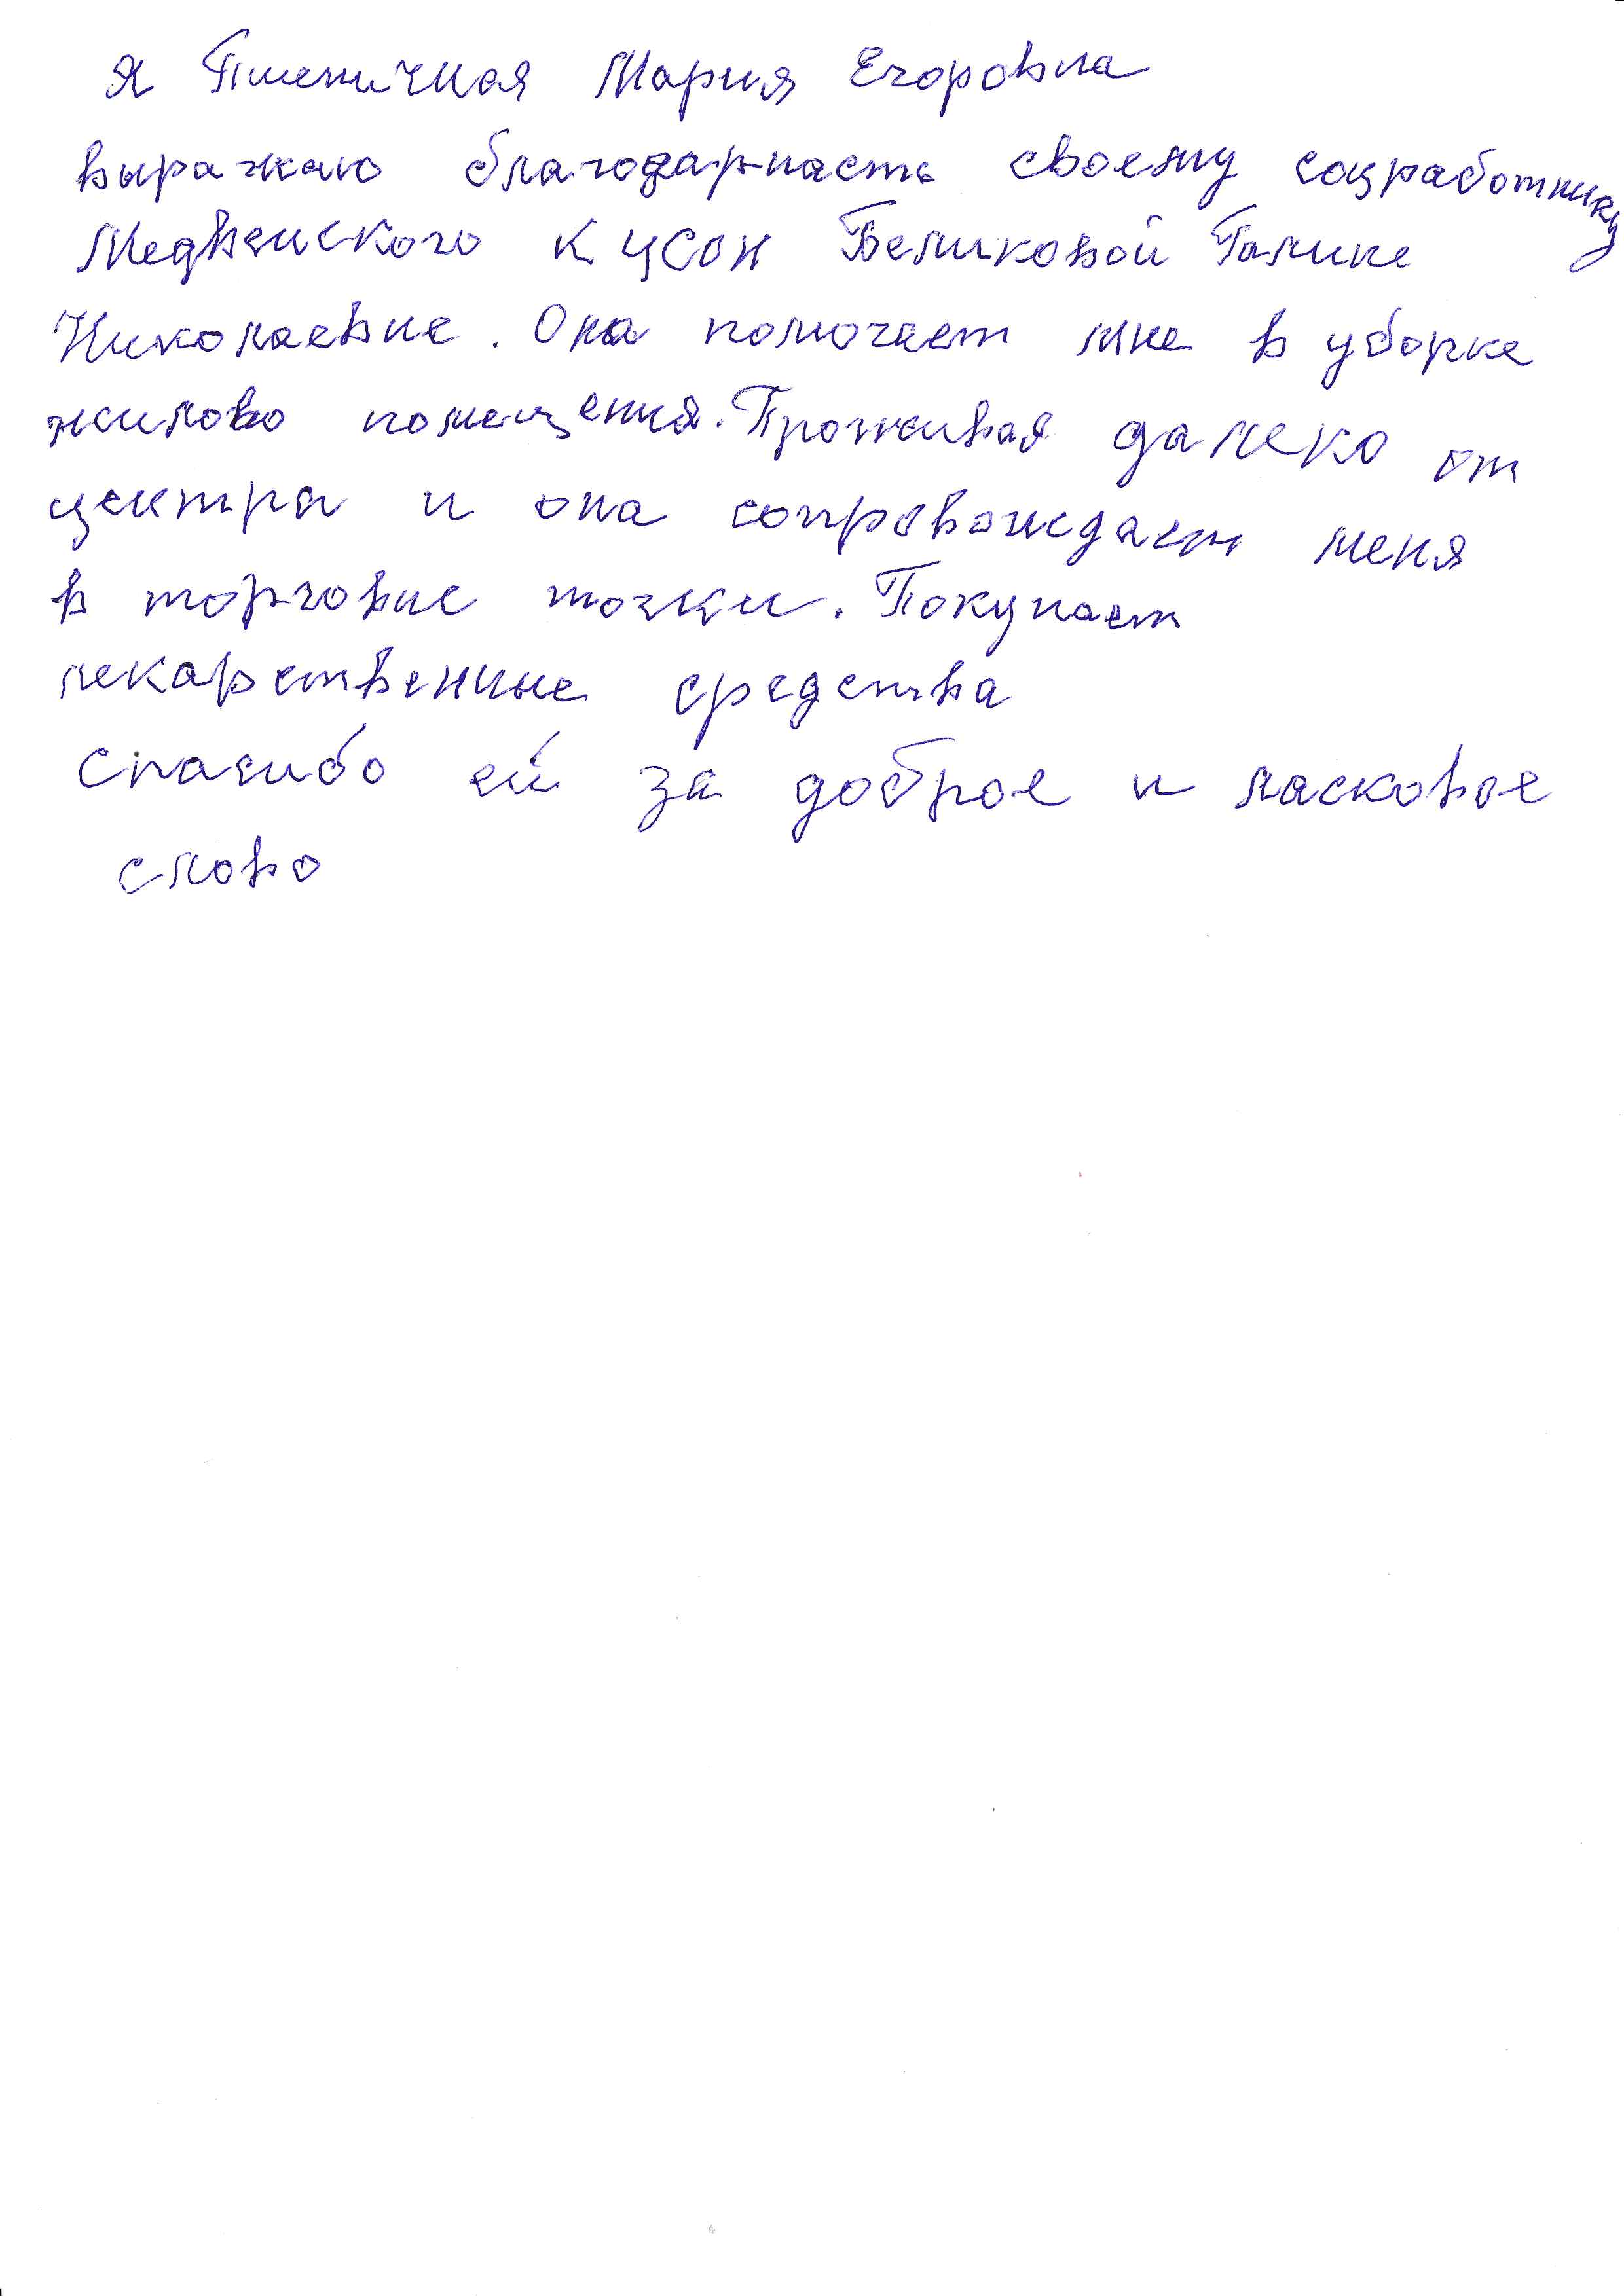 Я Пшеничная Мария Егоровна
выражаю благодарнасть своему соцработнику
Медвенского КЦСОН Беликовой Галине
Николаевне. Она помогает мне в уборке
жилово помещения. Проживая далеко от
центра и она сопровождает меня
в торговие точки. Покупает
лекарственные средства
Спасибо ей за доброе и ласковое
слово